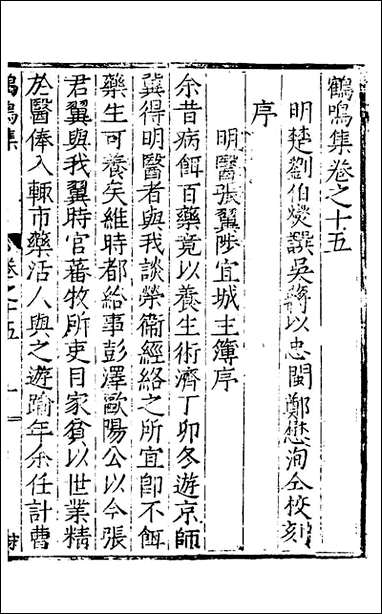 鶴鳴集卷之十五
明楚劉伯燮譔吳蔣以忠閩鄭懋洵仝校刻
序
明醫張翼陟宜城主簿序
余昔病餌百藥竟以養生術濟丁卯冬遊京師
冀得明醫者與我談榮衞經絡之所宜卽不餌
藥生可養矣維時都給事彭澤歐陽公以今張
君翼與我翼時官蕃牧所吏目家貧以世業精
於醫俸入輒市藥活人與之遊踰年余任計曹
鶴鳴集
卷之十五
一